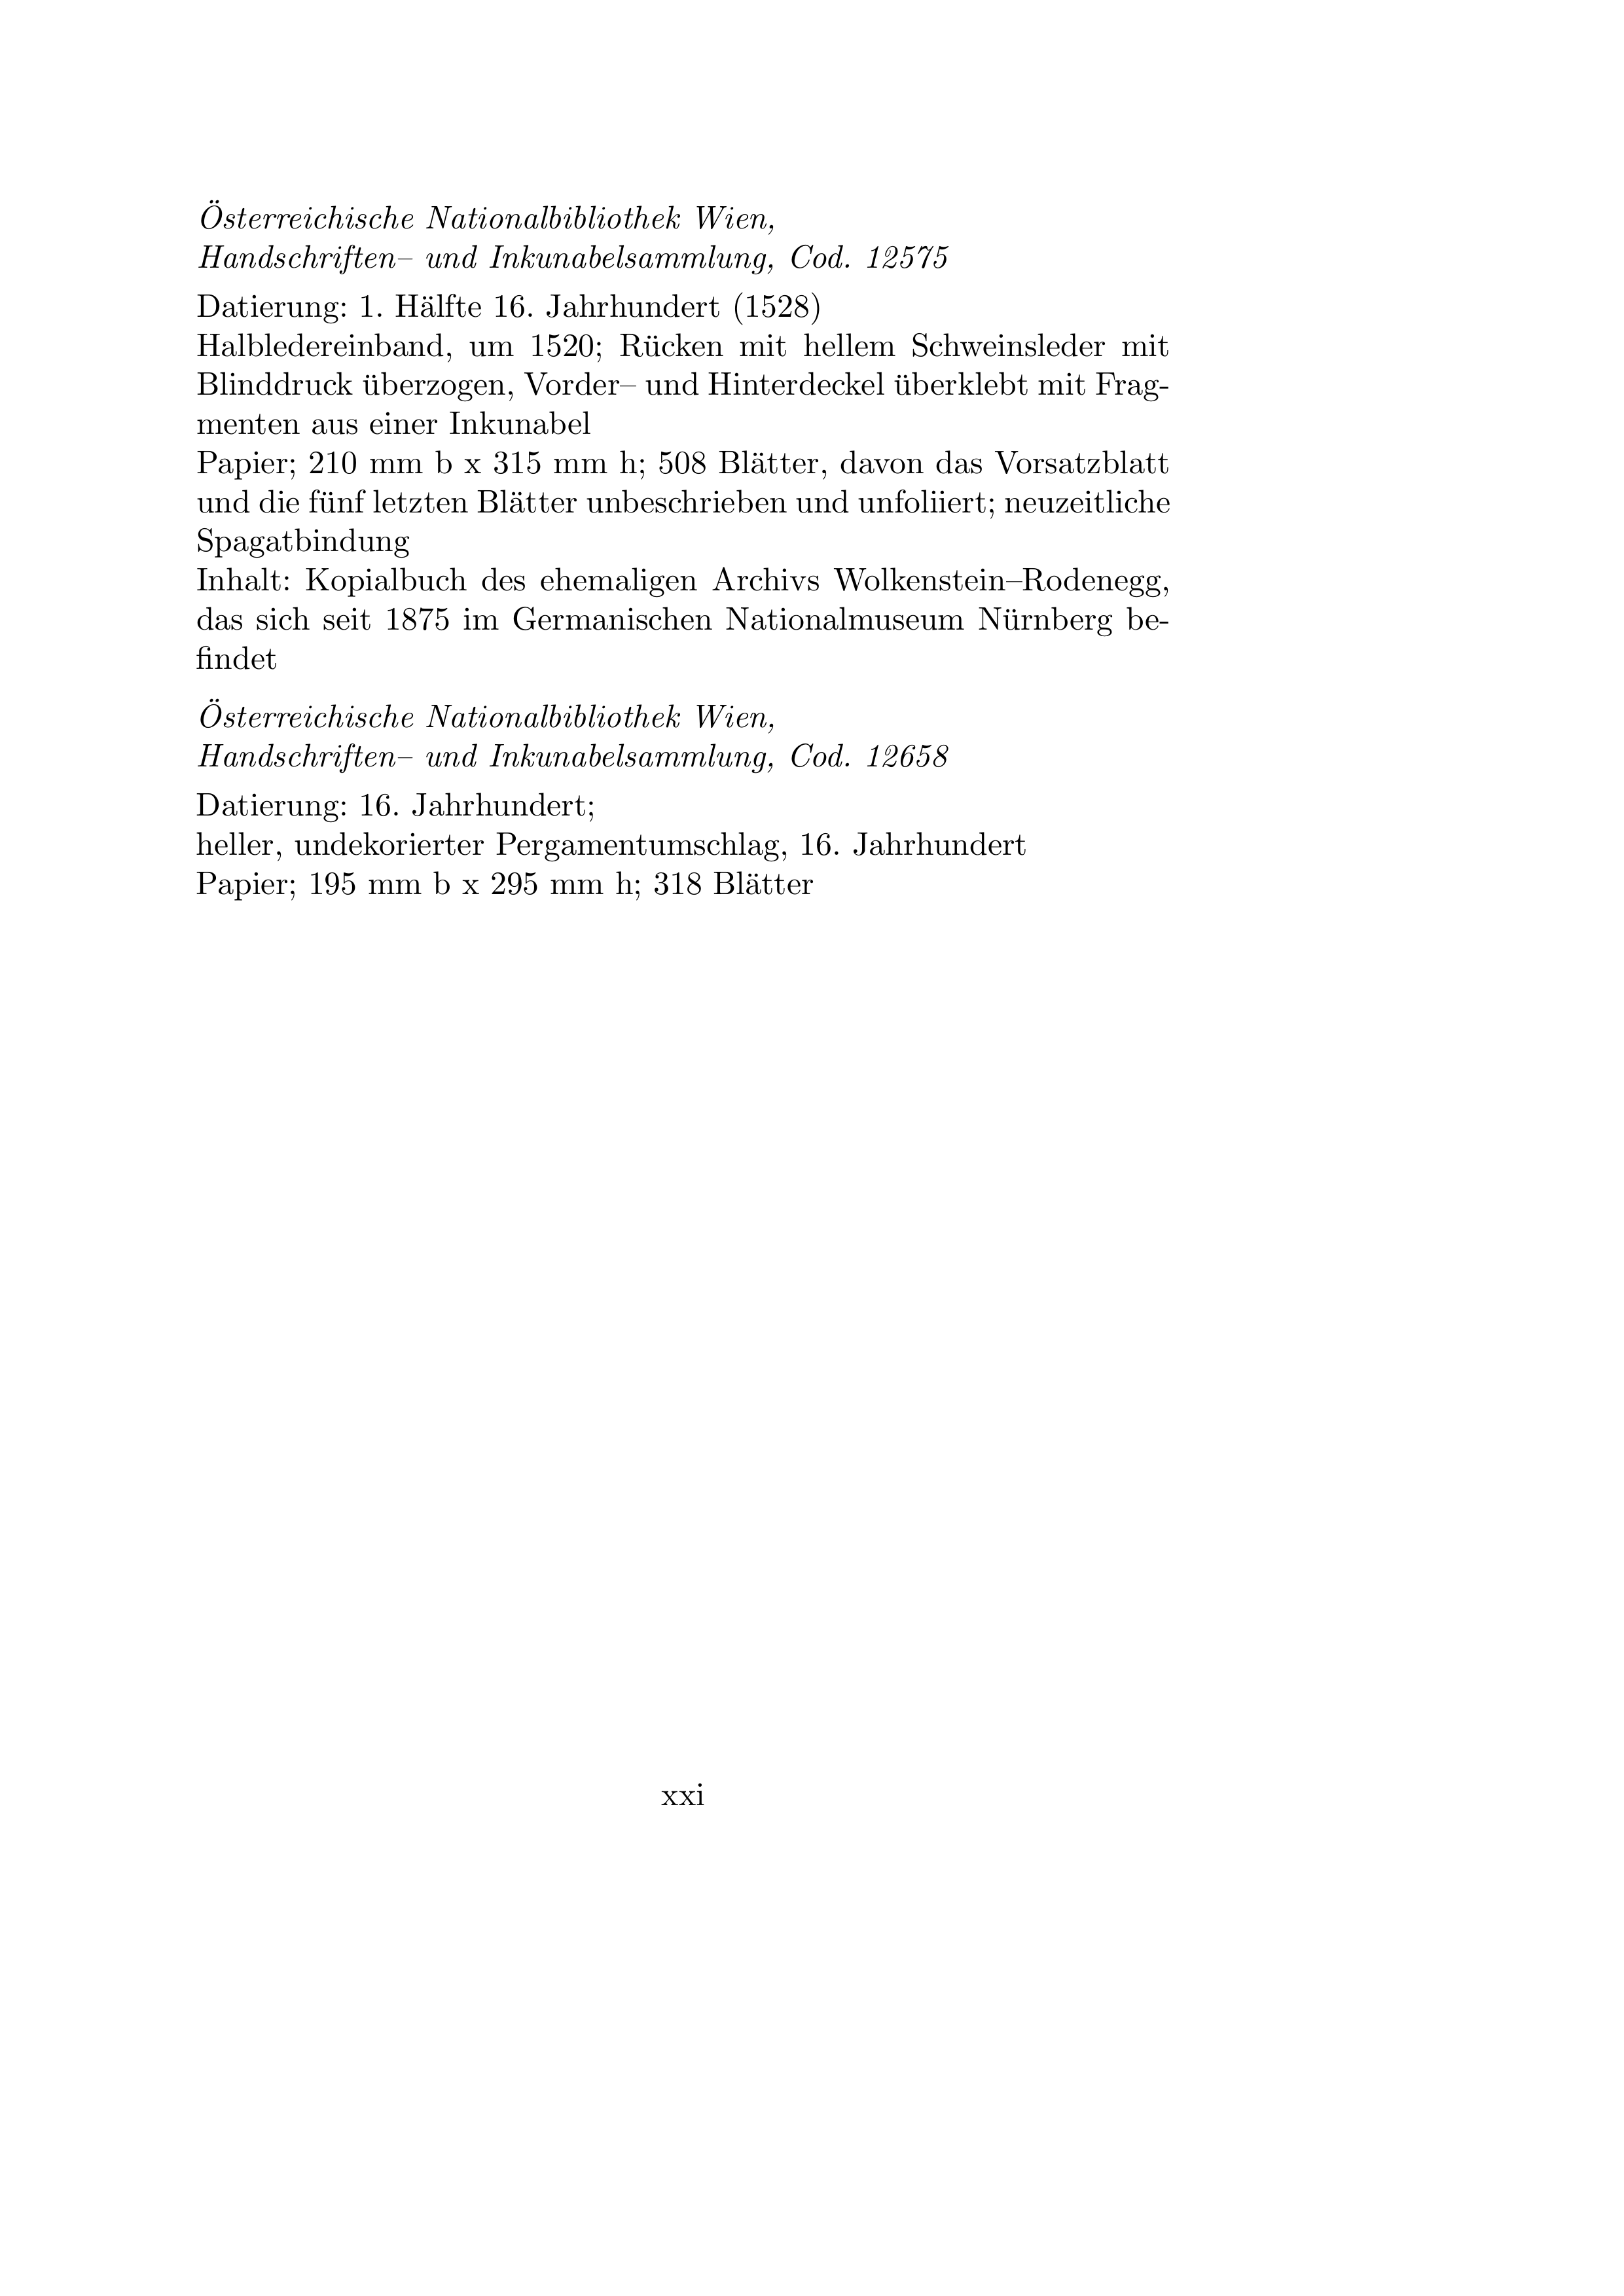 Österreichische Nationalbibliothek Wien,
Handschriften– und Inkunabelsammlung, Cod. 12575
Datierung: 1. Hälfte 16. Jahrhundert (1528)
Halbledereinband, um 1520; Rücken mit hellem Schweinsleder mit
Blinddruck überzogen, Vorder– und Hinterdeckel überklebt mit Frag-
menten aus einer Inkunabel
Papier; 210 mm b x 315 mm h; 508 Blätter, davon das Vorsatzblatt
und die fünf letzten Blätter unbeschrieben und unfoliiert; neuzeitliche
Spagatbindung
Inhalt: Kopialbuch des ehemaligen Archivs Wolkenstein–Rodenegg,
das sich seit 1875 im Germanischen Nationalmuseum Nürnberg be-
findet
Österreichische Nationalbibliothek Wien,
Handschriften– und Inkunabelsammlung, Cod. 12658
Datierung: 16. Jahrhundert;
heller, undekorierter Pergamentumschlag, 16. Jahrhundert
Papier; 195 mm b x 295 mm h; 318 Blätter
xxi